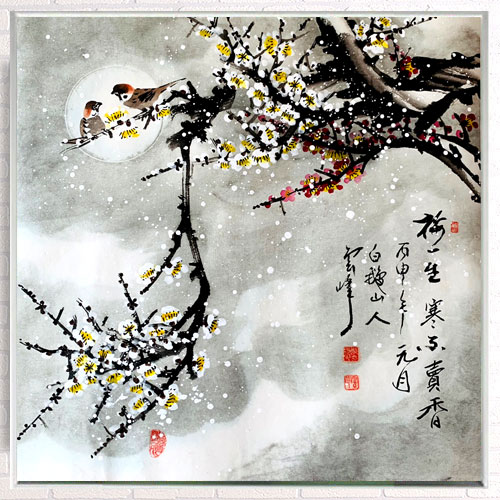 梅一生寒不賣香
丙申年元月
白鵝山人
雲峰